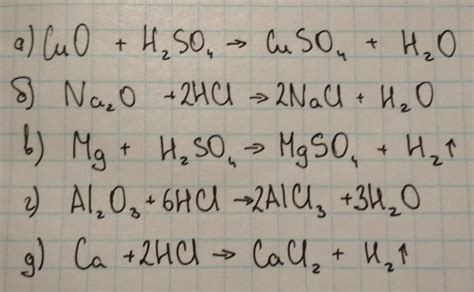 а) CuO + H₂SO₄ → CuSO₄ + H₂O
б) Na₂O + 2HCl → 2NaCl + H₂O
в) Mg + H₂SO₄ → MgSO₄ + H₂↑
г) Al₂O₃ + 6HCl → 2AlCl₃ + 3H₂O
д) Ca + 2HCl → CaCl₂ + H₂↑